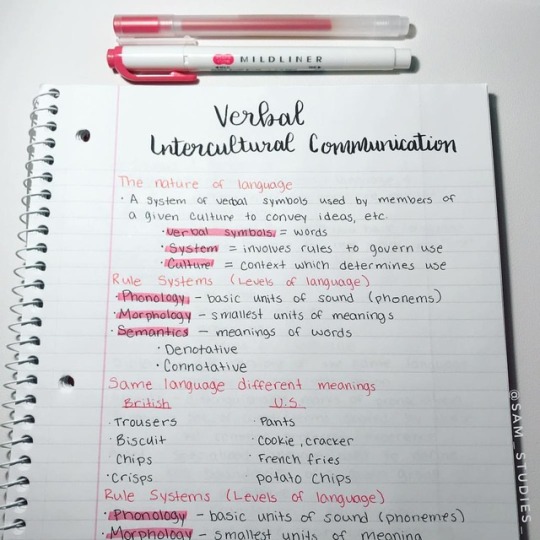 MILDLINER
Verbal
Intercultural Communication
The nature of language
· A system of verbal symbols used by members of
a given culture to convey ideas, etc
· Verbal symbols = words
· System = involves rules to govern use
· Culture = context which determines use
Rule Systems (Levels of language)
· Phonology - basic units of sound (phonems)
· Morphology - smallest units of meanings
· Semantics - meanings of words
· Denotative
· Connotative
Same language different meanings
British U.S.
· Trousers · Pants
· Biscuit · Cookie, cracker
· Chips · French fries
· Crisps potato chips
Rule Systems (Levels of language)
· Phonology - basic units of sound (phonemes)
· Morphology - smallest units of meaning
@SAM_STUDIES_